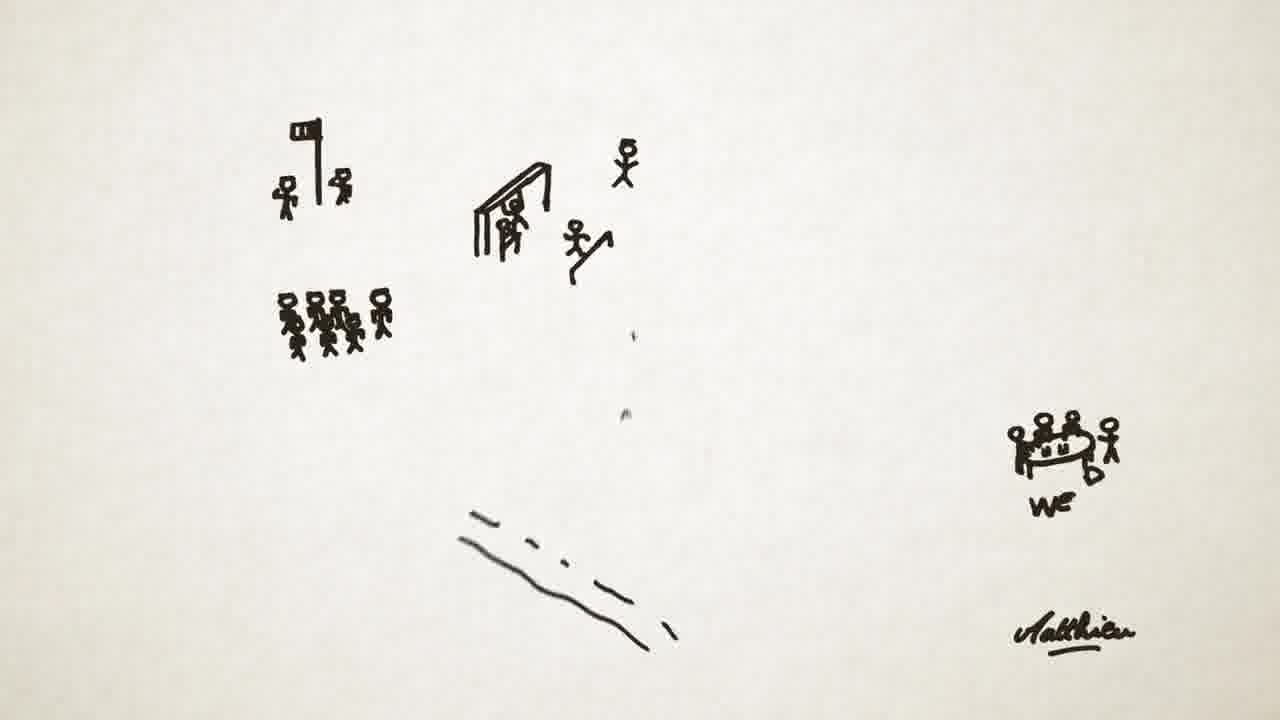 WE
Matthieu